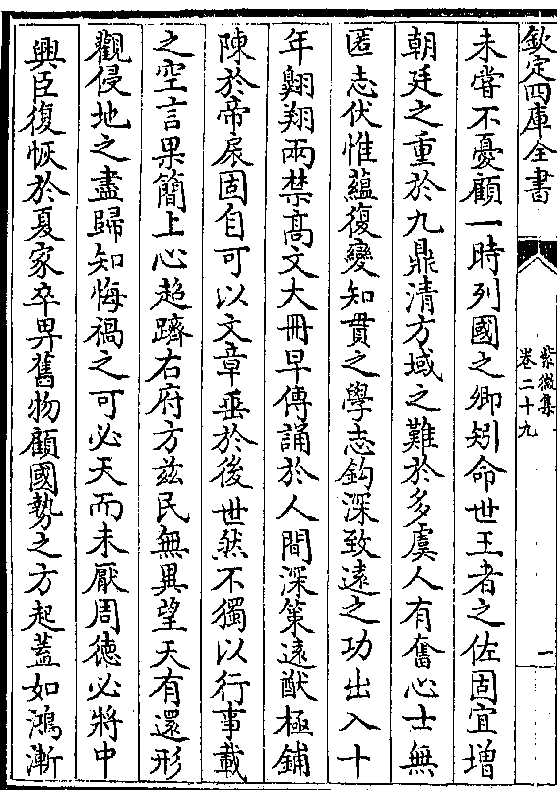 欽定四庫全書
紫微集
卷二十九
一
未嘗不憂顧一時列國之卿矧命世王者之佐固宜增
朝廷之重於九鼎清方域之難於多虞人有奮心士無
匿志伏惟蘊復變知貫之學志鈎深致遠之功出入十
年翺翔兩禁髙文大冊早傳誦於人間深策遠猷極鋪
陳於帝扆固自可以文章垂於後世然不獨以行事載
之空言果簡上心超躋右府方兹民無異望天有還形
觀侵地之盡歸知悔禍之可必天而未厭周徳必將中
興臣復恢於夏家卒畀舊物顧國勢之方起蓋如鴻漸